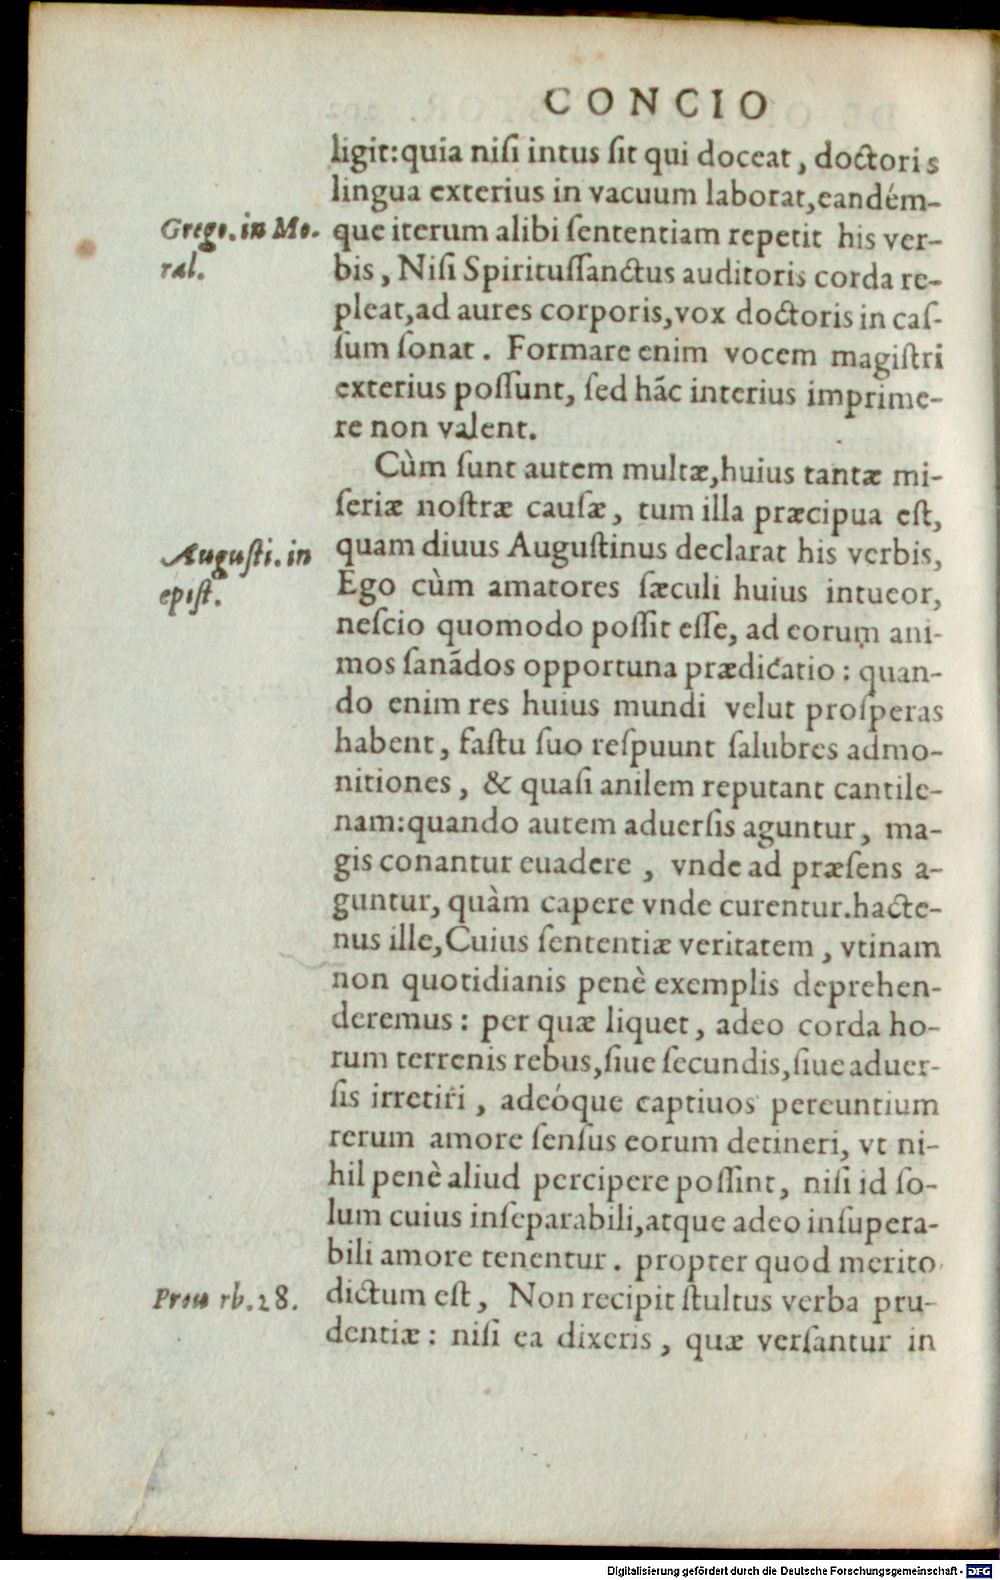 CONCIO
ligit:quia niſi intus ſit qui doceat, doctoris
lingua exterius in vacuum laborat,eandém-
Grego. in Mo.
que iterum alibi ſententiam repetit his ver-
ral.
bis, Niſi Spirituſſanctus auditoris corda re-
pleat,ad aures corporis,vox doctoris in caſ-
ſum ſonat. Formare enim vocem magiſtri
exterius poſſunt, ſed hãc interius imprime-
re non valent.
Cùm ſunt autem multæ,huius tantæ mi-
ſeriæ noſtræ cauſæ, tum illa præcipua eſt,
Auguſti. in
quam diuus Auguſtinus declarat his verbis,
epiſt.
Ego cùm amatores ſæculi huius intueor,
neſcio quomodo poſſit eſſe, ad eorum ani-
mos ſanãdos opportuna prædicatio: quan-
do enim res huius mundi velut proſperas
habent, faſtu ſuo reſpuunt ſalubres admo-
nitiones, & quaſi anilem reputant cantile-
nam:quando autem aduerſis aguntur, ma-
gis conantur euadere, vnde ad præſens a-
guntur, quàm capere vnde curentur.hacte-
nus ille,Cuius ſententiæ veritatem, vtinam
non quotidianis penè exemplis deprehen-
deremus: per quæ liquet, adeo corda ho-
rum terrenis rebus,ſiue ſecundis,ſiue aduer-
ſis irretiri, adeóque captiuos pereuntium
rerum amore ſenſus eorum detineri, vt ni-
hil penè aliud percipere poſſint, niſi id ſo-
lum cuius inſeparabili,atque adeo inſupera-
bili amore tenentur. propter quod merito
Prou rb. 28.
dictum eſt, Non recipit ſtultus verba pru-
dentiæ: niſi ea dixeris, quæ verſantur in
Digitalisierung gefördert durch die Deutsche Forschungsgemeinschaft - DFG